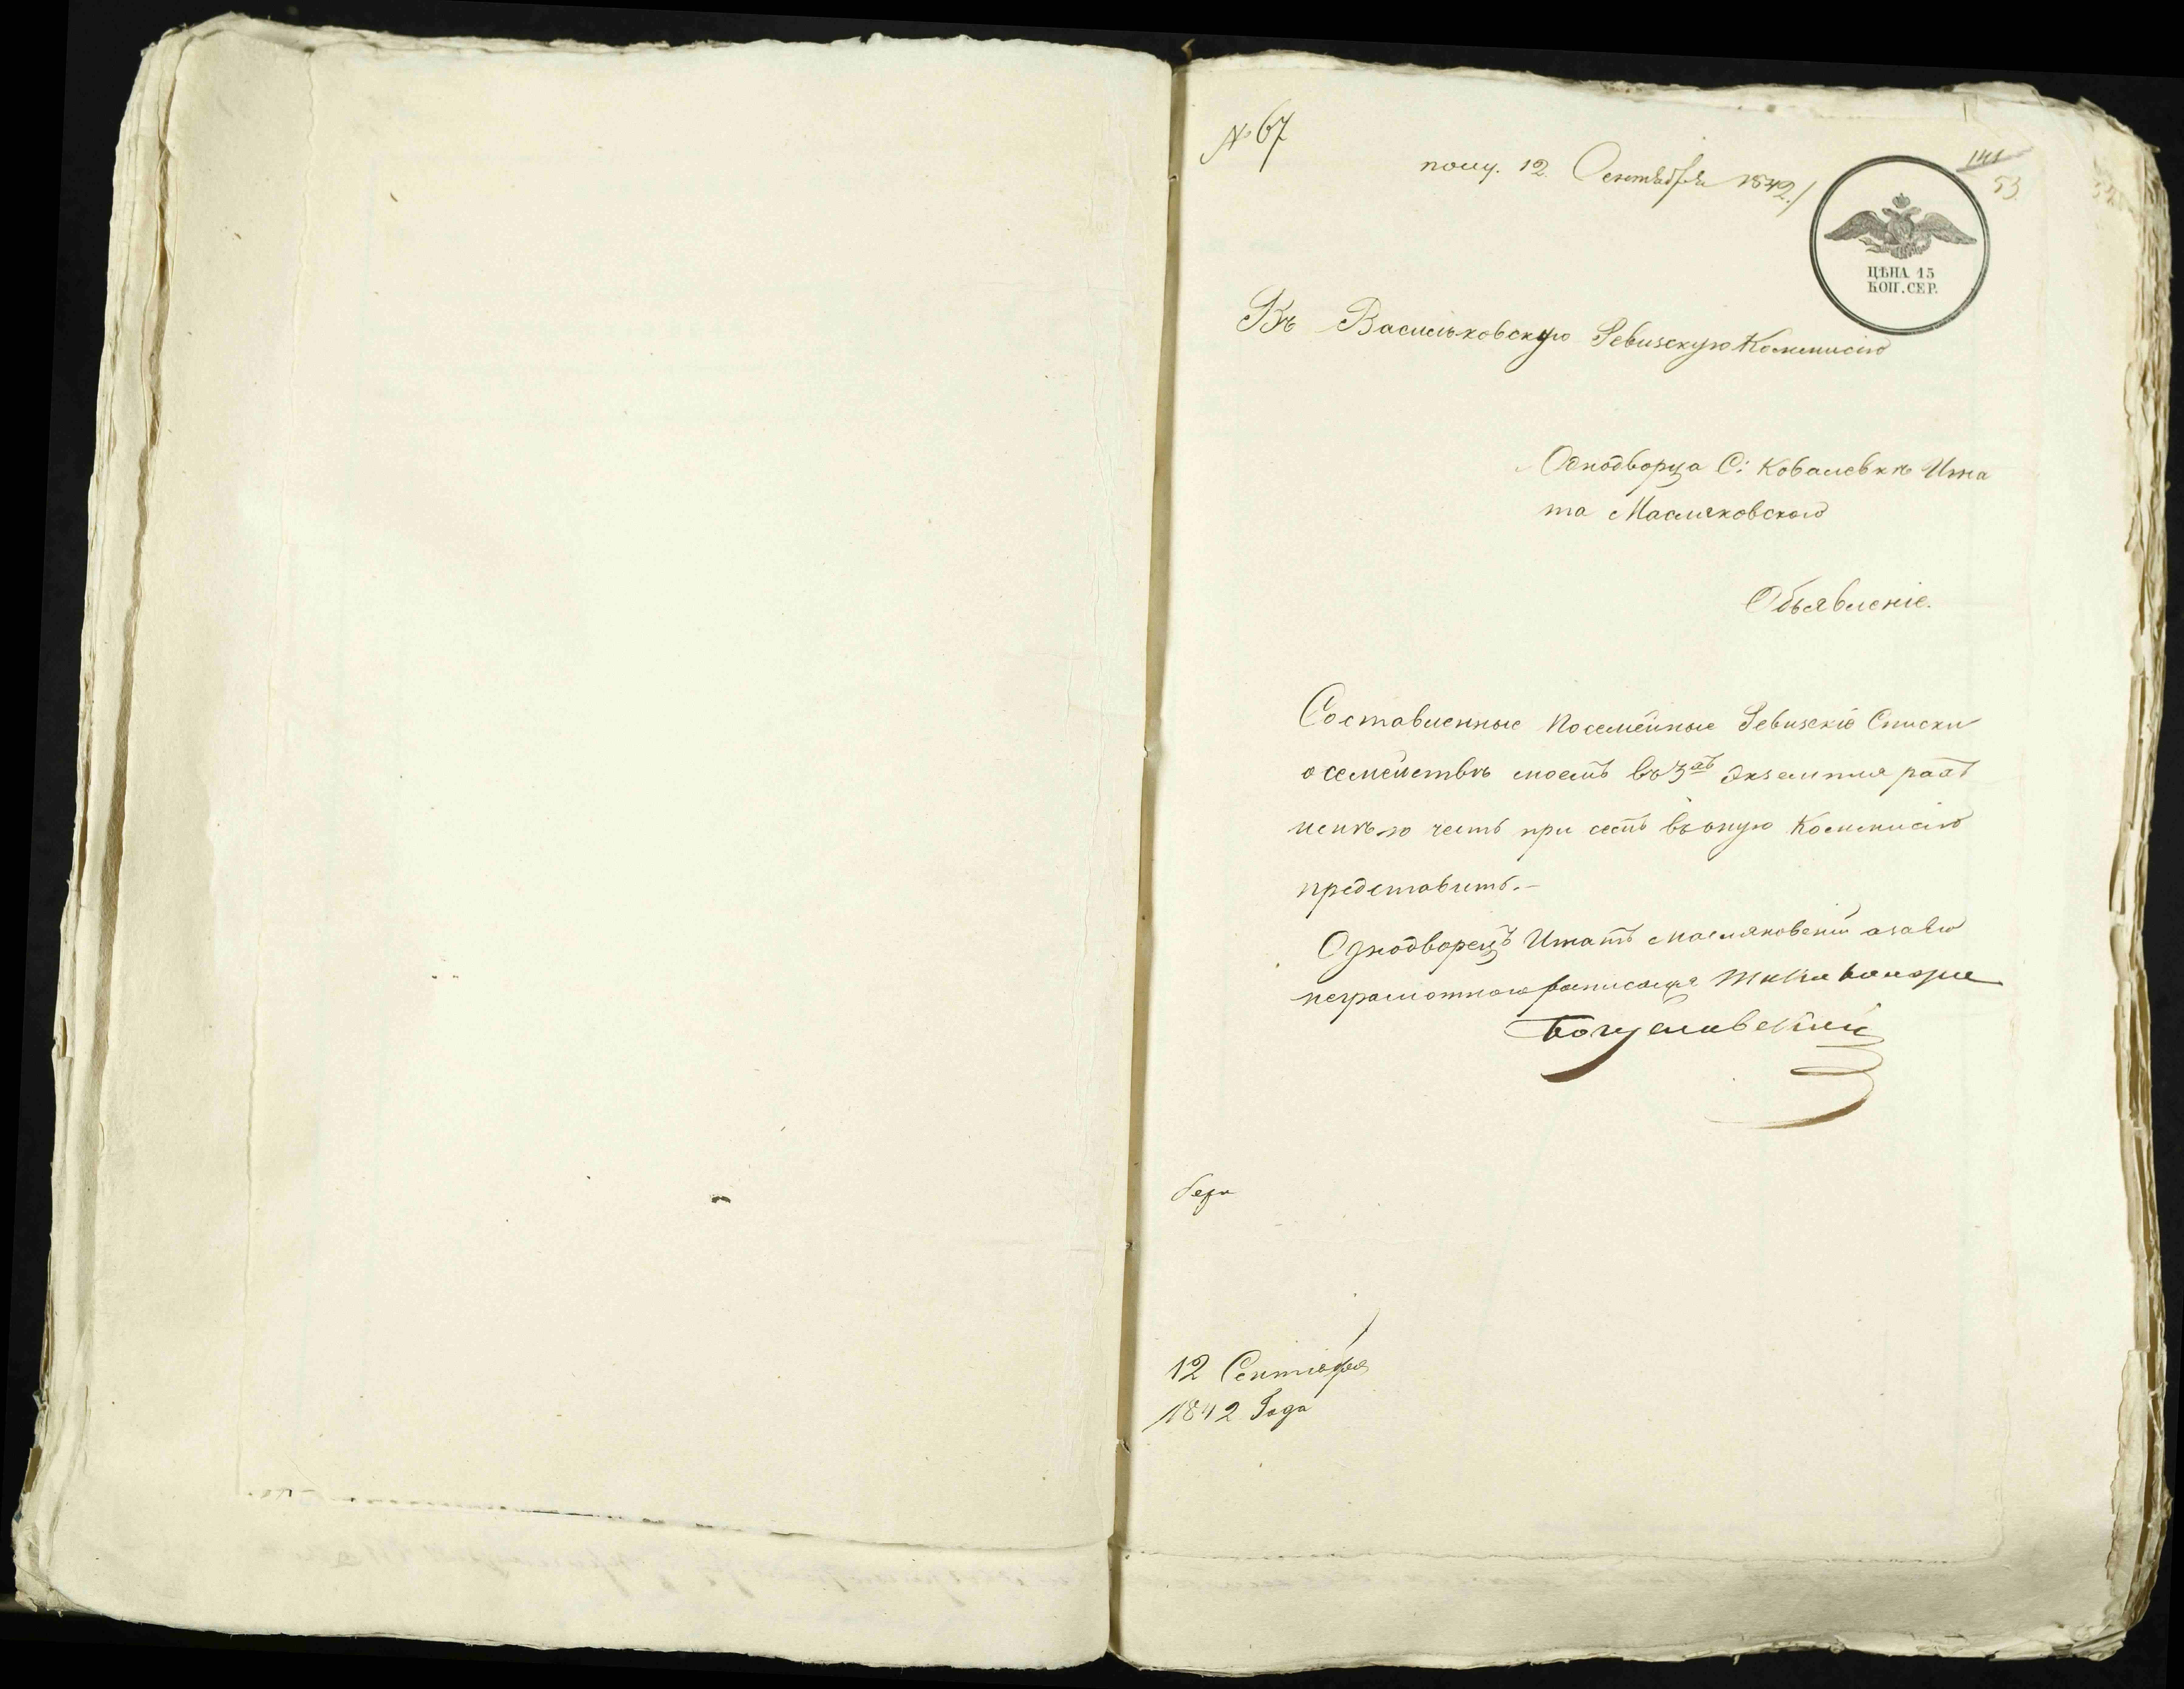 № 67
полу. 12 Сентября 1842./
141
53
ЦѢНА 15
КОП. СЕР.
Въ Васильковскую Ревизскую Коммисію
Однодворца С: Ковалевки Игна
та Масляковского
Объявленіе.
Составленные посемейные Ревизскіе Списки
о семействѣ моемъ въ 3хъ Экземплярахъ
имѣю честь при семъ въ оную Коммисію
представить.-
Однодворецъ Игнатъ Масляковскій азаего
неграмотного росписался
Богуславскій
12 Сентября
1842 Года